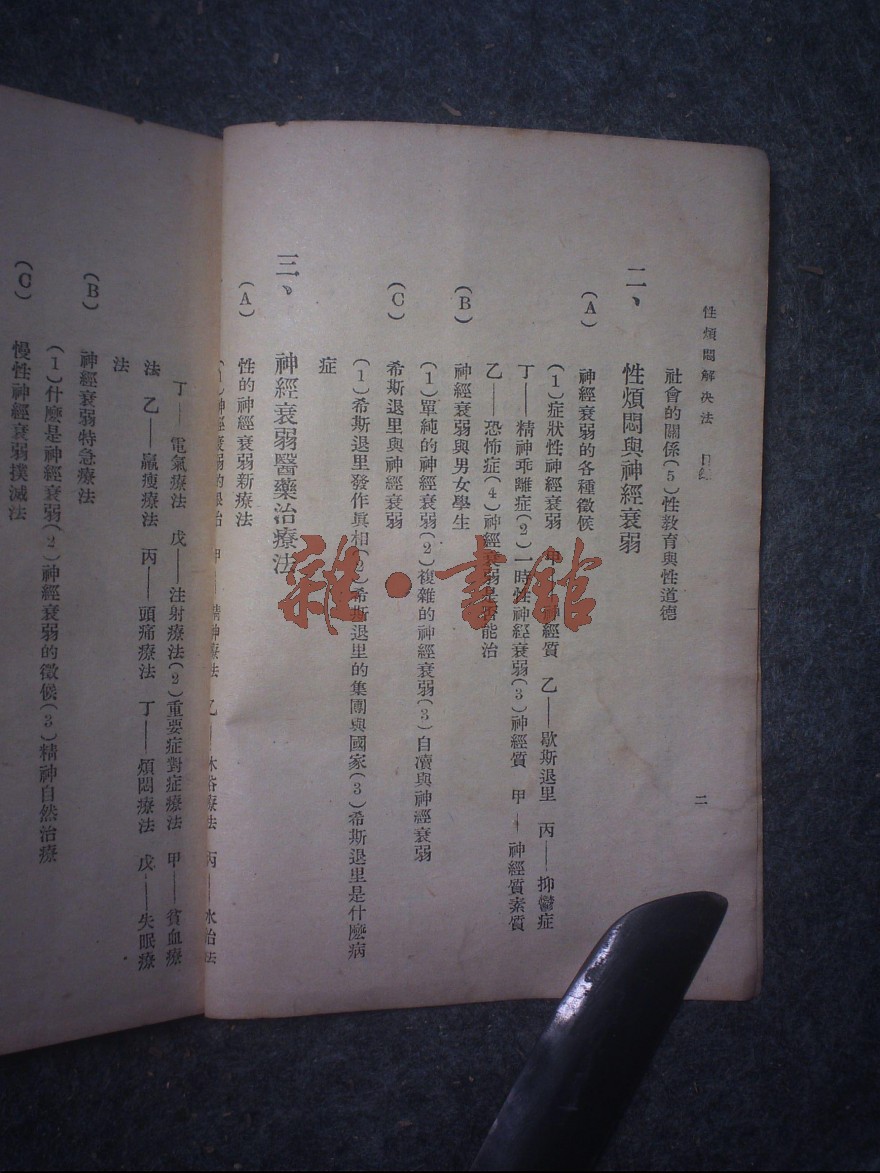 性煩悶解決法 目錄
二
社會的關係(5)性教育與性道德
二、 性煩悶與神經衰弱
(A) 神經衰弱的各種徵候
(1)症狀性神經衰弱 甲——神經質 乙——歇斯退里 丙——抑鬱症
丁——精神乖離症(2)一時性神經衰弱(3)神經質 甲——神經質素質
乙——恐怖症(4)神經衰弱是否能治
(B) 神經衰弱與男女學生
(1)單純的神經衰弱(2)複雜的神經衰弱(3)自凟與神經衰弱
(C) 希斯退里與神經衰弱
(1)希斯退里發作眞相(2)希斯退里的集團與國家(3)希斯退里是什麼病
症
三、 神經衰弱醫藥治療法
(A) 性的神經衰弱新療法
(1)神經衰弱的根治 甲——精神療法 乙——沐浴療法 丙——水治法
丁——電氣療法 戊——注射療法(2)重要症對症療法 甲——貧血療
法 乙——羸瘦療法 丙——頭痛療法 丁——煩悶療法 戊——失眠療
法
(B) 神經衰弱特急療法
(1)什麼是神經衰弱(2)神經衰弱的徵候(3)精神自然治療
(C) 慢性神經衰弱撲滅法
雜·書館